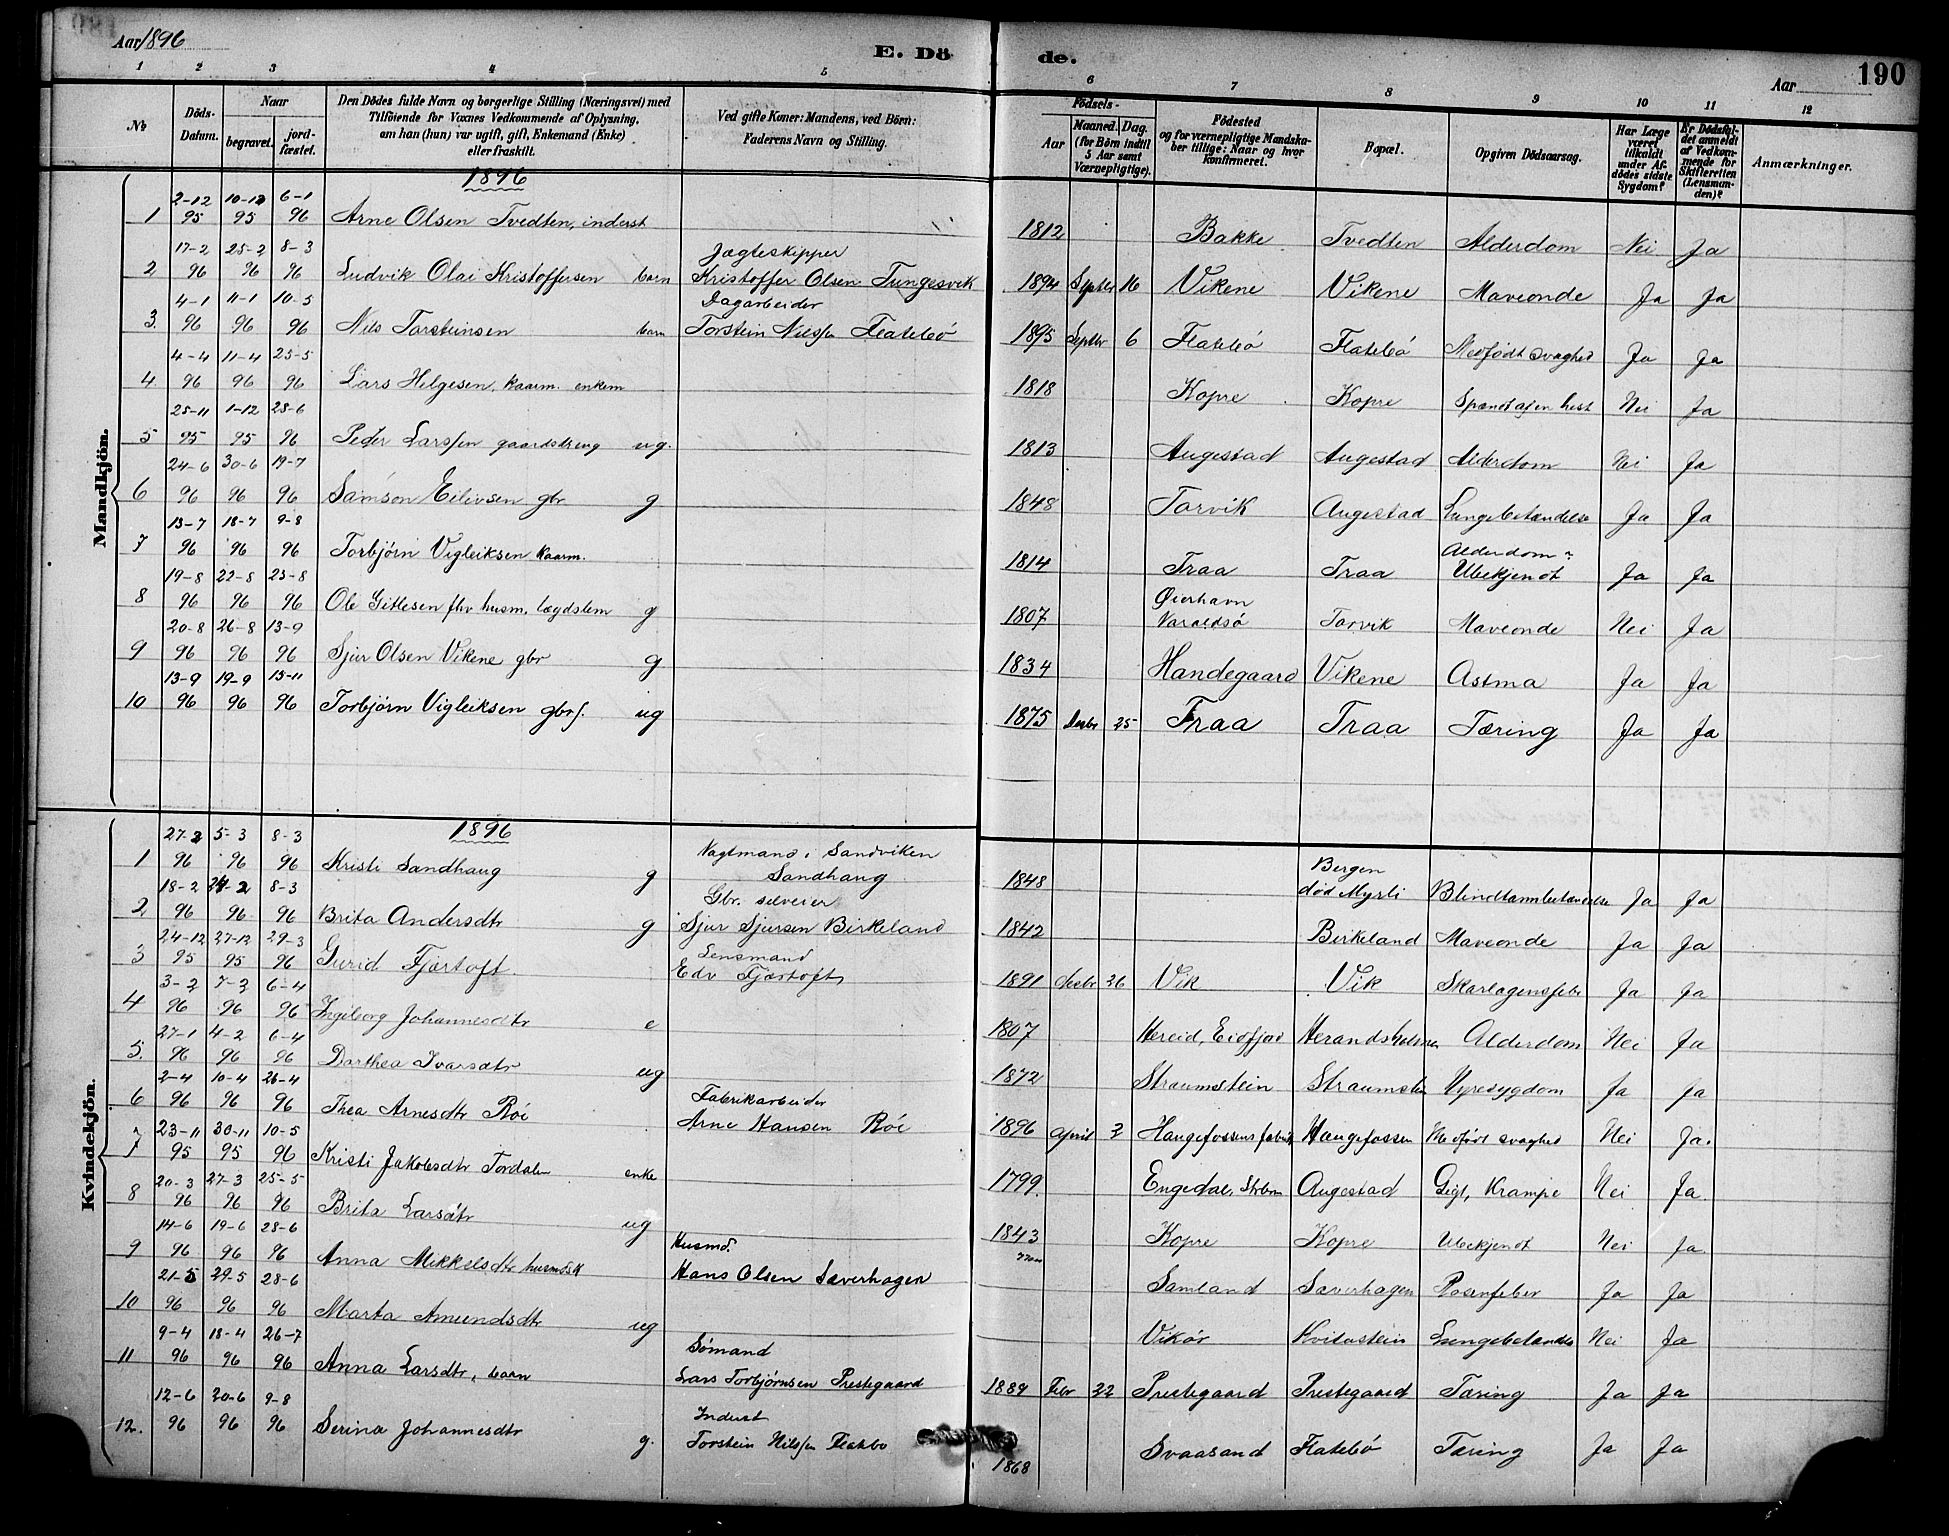 Aar 1896
E. Dö
de.
Aar
190
1 2 3 4 5 6 7 8 9 10 11 12
No
Döds-Datum.
Naar
begravet.
jord-fæstet.
Den Dödes fulde Navn og borgerlige Stilling (Næringsvei) med
Tilföiende for Voxnes Vedkommende af Oplysning,
om han (hun) var ugift, gift, Enkemand (Enke)
eller fraskilt.
Ved gifte Koner: Mandens, ved Börn:
Faderens Navn og Stilling.
Födsels-
Aar
Maaned. Dag.
(for Börn indtil
5 Aar samt
Værnepligtige).
Födested
og for værnepligtige Mandska-
ber tillige: Naar og hvor
konfirmeret.
Bopæl.
Opgiven Dödsaarsag.
Har Læge
været
tilkaldt
under Af-
dödes sidste
Sygdom?
Er Dödsfal-
det anmeldt
af Vedkom-
mende for
Skifteretten
(Lensman-
den)?
Anmærkninger.
Mandkjön.
1896
1 2-12 95 10-12 95 6-1 96 Arne Olsen Tvedten, inderst 1812 Bakke Tvedten Alderdom Nei Ja
2 17-2 96 25-2 96 8-3 96 Ludvik Olai Kristoffersen barn Jægteskipper Kristoffer Olsen Tungesvik 1894 Septbr 16 Vikene Vikene Maveonde Ja Ja
3. 4-1 96 11-1 96 10-5 96 Nils Torsteinsen barn Dagarbeider Torstein Nilssen Flatebö 1895 Septbr 6 Flatebö Flatebö Medfödt svaghed Ja Ja
4. 4-4 96 11-4 96 25-5 96 Lars Helgesen, kaarm. enkem 1818 Kopre Kopre Spændt af en hest Nei Ja
5 25-11 95 1-12 95 28-6 96 Peder Larssen gaardsdreng ug. 1813 Augestad Augestad Alderdom Nei Ja
6 24-6 96 30-6 96 19-7 96 Samson Eilivsen gbr g 1848 Torvik Augestad Lungebetændelse Ja Ja
7 13-7 96 18-7 96 9-8 96 Torbjørn Vigleiksen kaarm. 1814 Traa Traa Alderdom Ubekjendt Ja Ja
8 19-8 96 22-8 96 23-8 96 Ole Gitlesen fhv husm. lægdslem g 1807 Øierhavn Varaldsö Torvik Maveonde Nei Ja
9 20-8 96 26-8 96 13-9 96 Sjur Olsen Vikene gbr g 1834 Handegaard Vikene Astma Ja Ja
10 13-9 96 19-9 96 15-11 96 Torbjørn Vigleiksen gbrs. ug 1875 Desbr 25 Traa Traa Tæring Ja Ja
Kvindekjön.
1896
1 27-2 96 5-3 96 8-3 96 Kristi Sandhaug g Vagtmand i Sandviken Sandhaug 1848 Bergen död Myrli Blindtarmbetændelse Ja Ja
2 18-2 96 24-2 96 8-3 96 Brita Andersdtr g Gbr. selveier Sjur Sjursen Birkeland 1842 Birkeland Maveonde Ja Ja
3 24-12 95 27-12 95 29-3 96 Gurid Fjørtoft Lensmand Edv Fjørtoft 1891 desbr 26 Vik Vik Skarlagensfebr Ja Ja
4 3-2 96 7-2 96 6-4 96 Ingeborg Johannesdtr e 1807 Hereid, Eidfjord Herandsholmen Alderdom Nei Ja
5. 27-1 96 4-2 96 6-4 96 Dorthea Ivarsdtr ug 1872 Straumstein Straumstein Nyresygdom Ja Ja
6 2-4 96 10-4 96 26-4 96 Thea Arnesdtr Röe Fabrikarbeider Arne Hansen Röe 1896 April 2 Haugefossens fabrik Haugefossen Medfödt svaghed Nei Ja.
7 23-11 95 30-11 95 10-5 96 Kristi Jakobsdtr Tordalen enke 1799. Engedal, Strbm Augestad Gigt, Krampe Nei Ja.
8 20-3 96 27-3 96 25-5 96 Brita Larsdtr ug 1843 Kopre Kopre Ubekjendt Nei Ja
9 14-6 96 19-6 96 28-6 96 Anna Mikkelsdtr husmdsk Husmd. Hans Olsen Sæverhagen Samland Sæverhagen Rosenfeber Ja Ja
10 21-5 96 29-5 96 28-6 96 Marta Amundsdtr ug Vikör Kvitastein Lungebetændelse Nei Ja
11 9-4 96 18-4 96 26-7 96 Anna Larsdtr, barn Sømand Lars Torbjørnsen Prestegaard 1889 Febr 22 Prestegaard Prestegaard Tæring Ja Ja
12. 12-6 96 20-6 96 9-8 96 Serina Johannesdtr g. Inderst Torstein Nilssen Flatebö 1868 Svaasand Flatebö Tæring Ja Ja